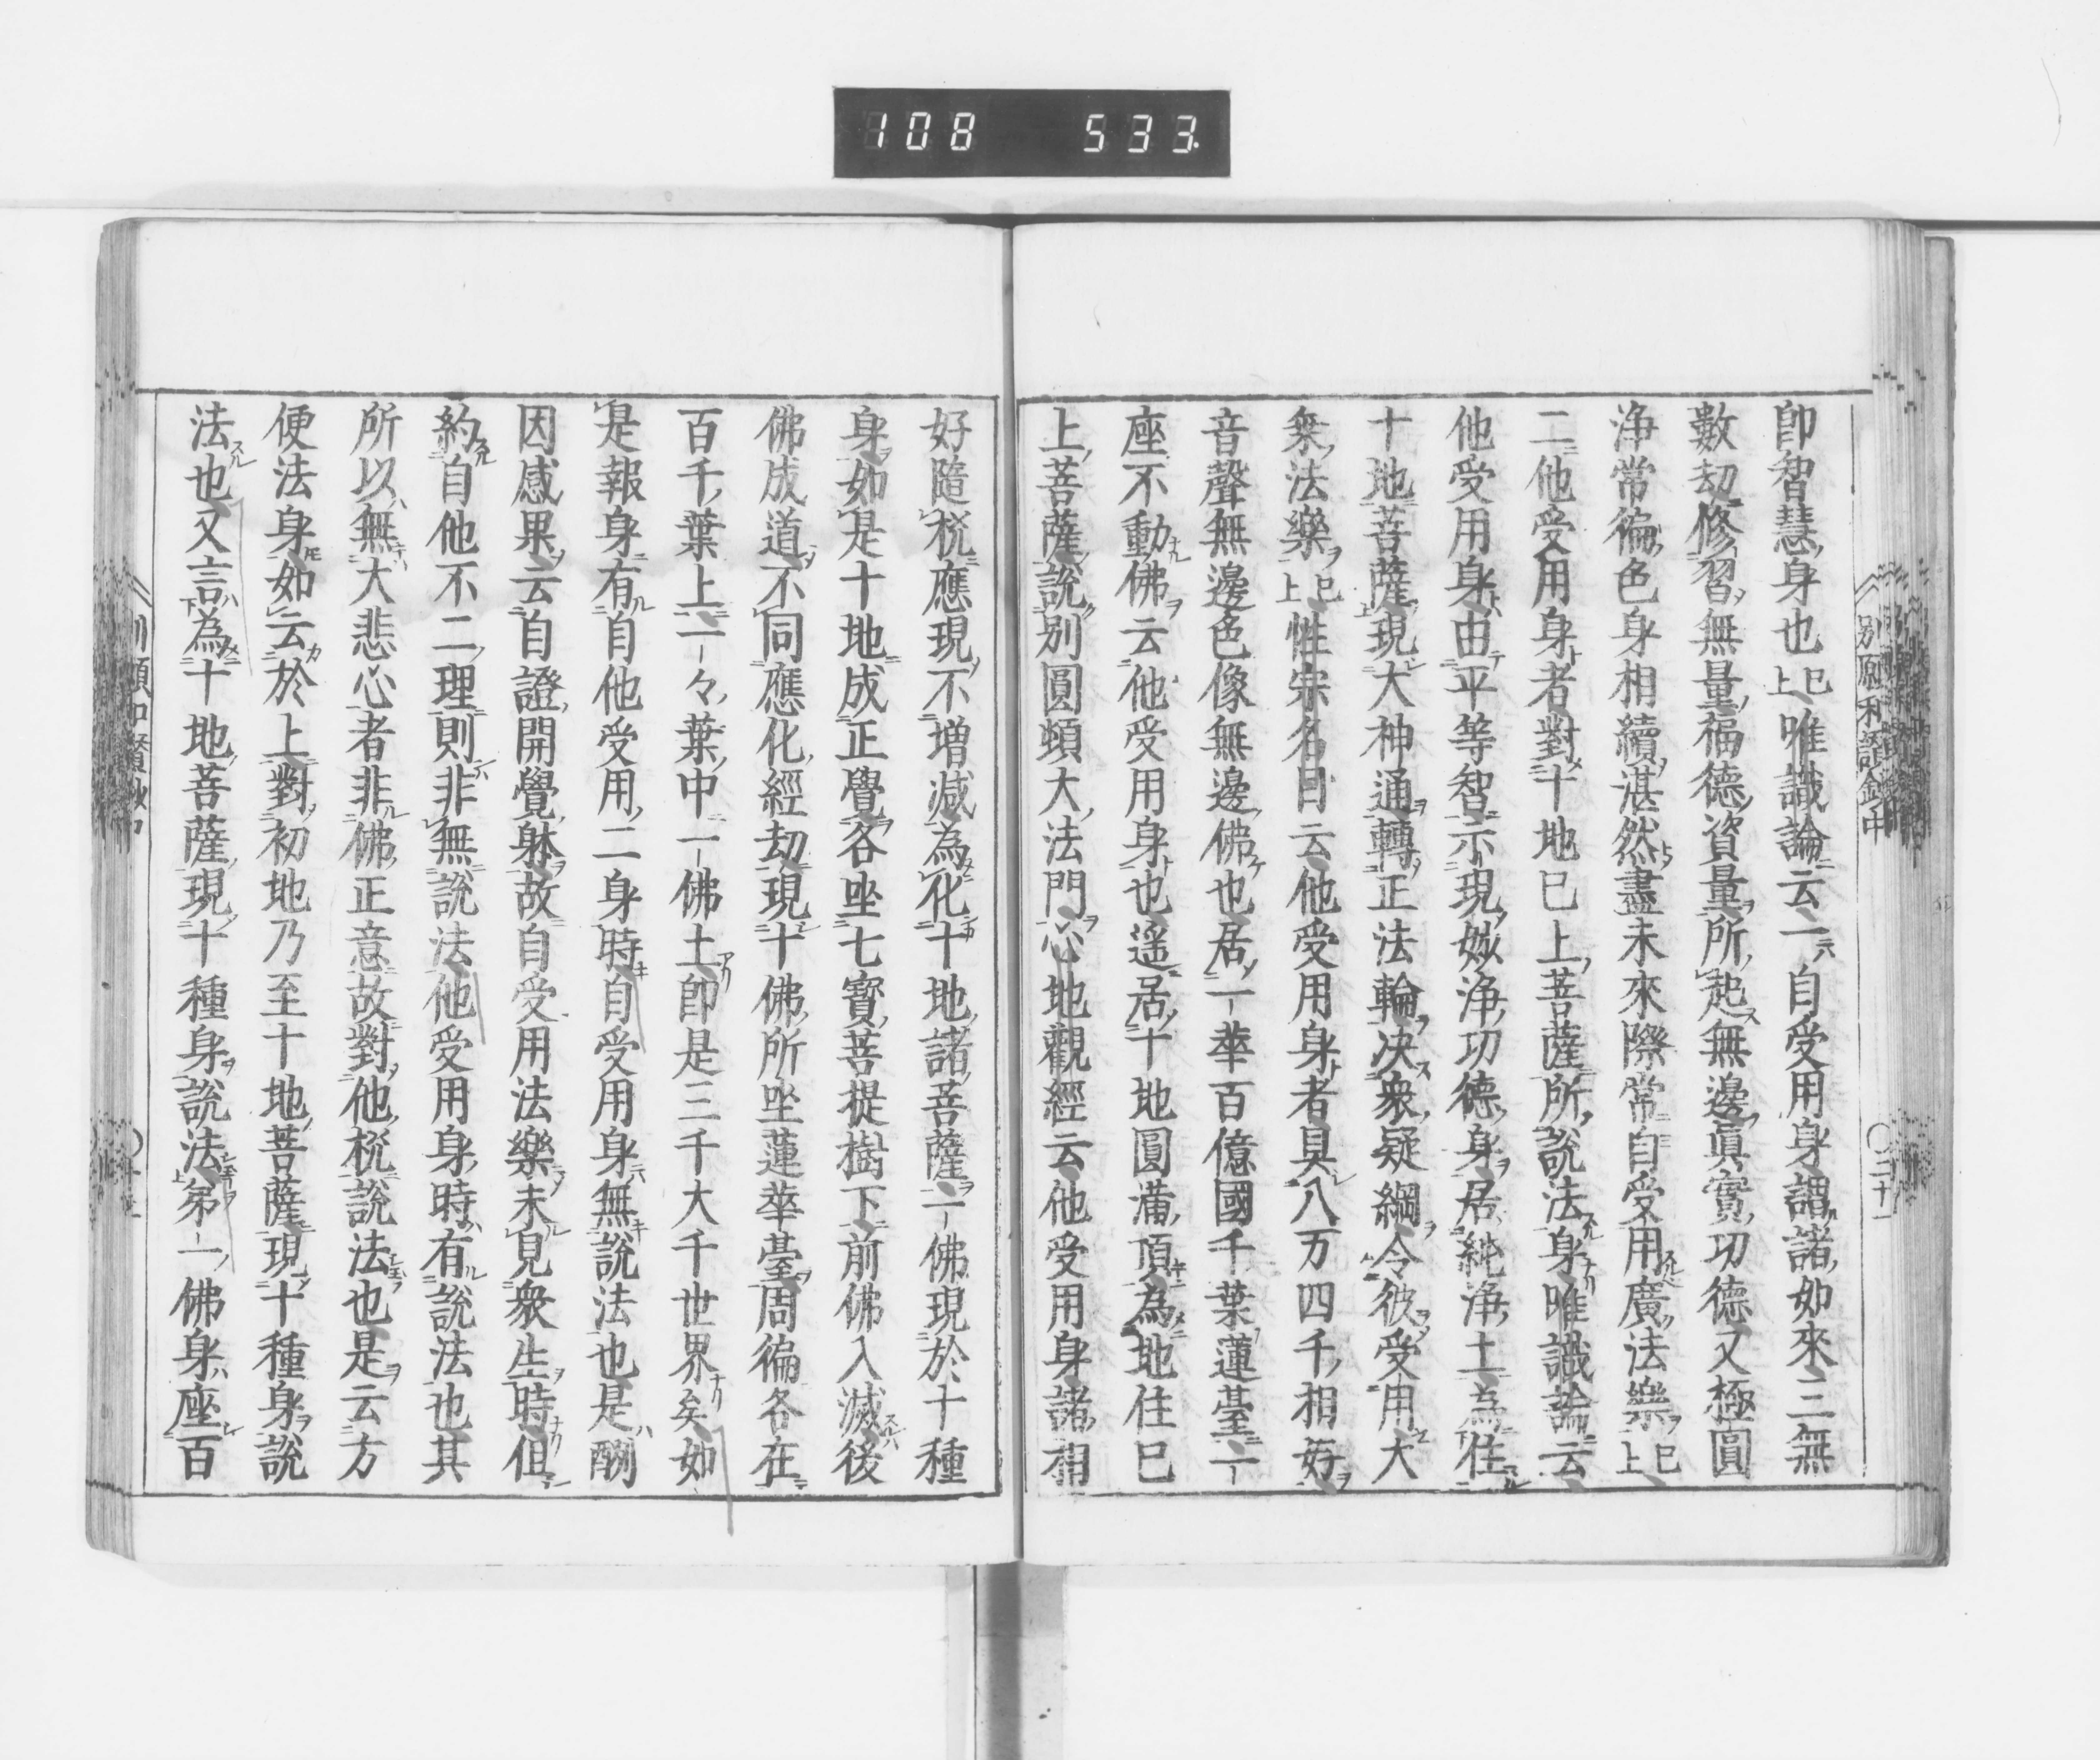 108 533
別願和讃鈔中
二十一
即智慧身也已上唯識論云一自受用身謂諸如來三無
數劫修習無量福德資量所起無邊眞實功德又極圓
淨常徧色身相續湛然盡未來際常自受用廣法樂已上
二他受用身者對十地已上菩薩所說法身唯識論云
他受用身由平等智示現妙淨功德身居純淨土為住
十地菩薩現大神通轉正法輪决衆疑網令彼受用大
乘法樂已上性宗名目云他受用身者具八万四千相好
音聲無邊色像無邊佛也居一華百億國千葉蓮臺一
座不動佛云他受用身也遥居十地圓滿頂為地住已
上菩薩說別圓頓大法門心地觀經云他受用身諸相
好隨機應現不增減為化十地諸菩薩一佛現於十種
身如是十地成正覺各坐七寳菩提樹下前佛入滅後
佛成道不同應化經劫現十佛所坐蓮華臺周徧各在
百千葉上一々葉中一佛土即是三千大千世界矣如
是報身有自他受用二身時自受用身無說法也是酬
因感果云自證開覺躰故自受用法樂未見衆生時但
約自他不二理則非無說法他受用身時有說法也其
所以無大悲心者非佛正意故對他機說法也是云方
便法身如云於上對初地乃至十地菩薩現十種身說
法也又言為十地菩薩現十種身說法第一佛身座百